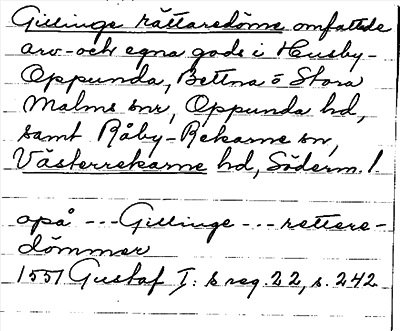 Gillinge rättaredöme omfattde
arv- och egna gods i Husby-
Oppunda, Bettna o Stora
Malms snr, Oppunda hd,
samt Råby-Rekarne sn,
Västerrekarne hd, Söderm.l.
apå --- Gillinge --- rettere-
dömmer
1551 Gustaf I:s reg. 22, s. 242